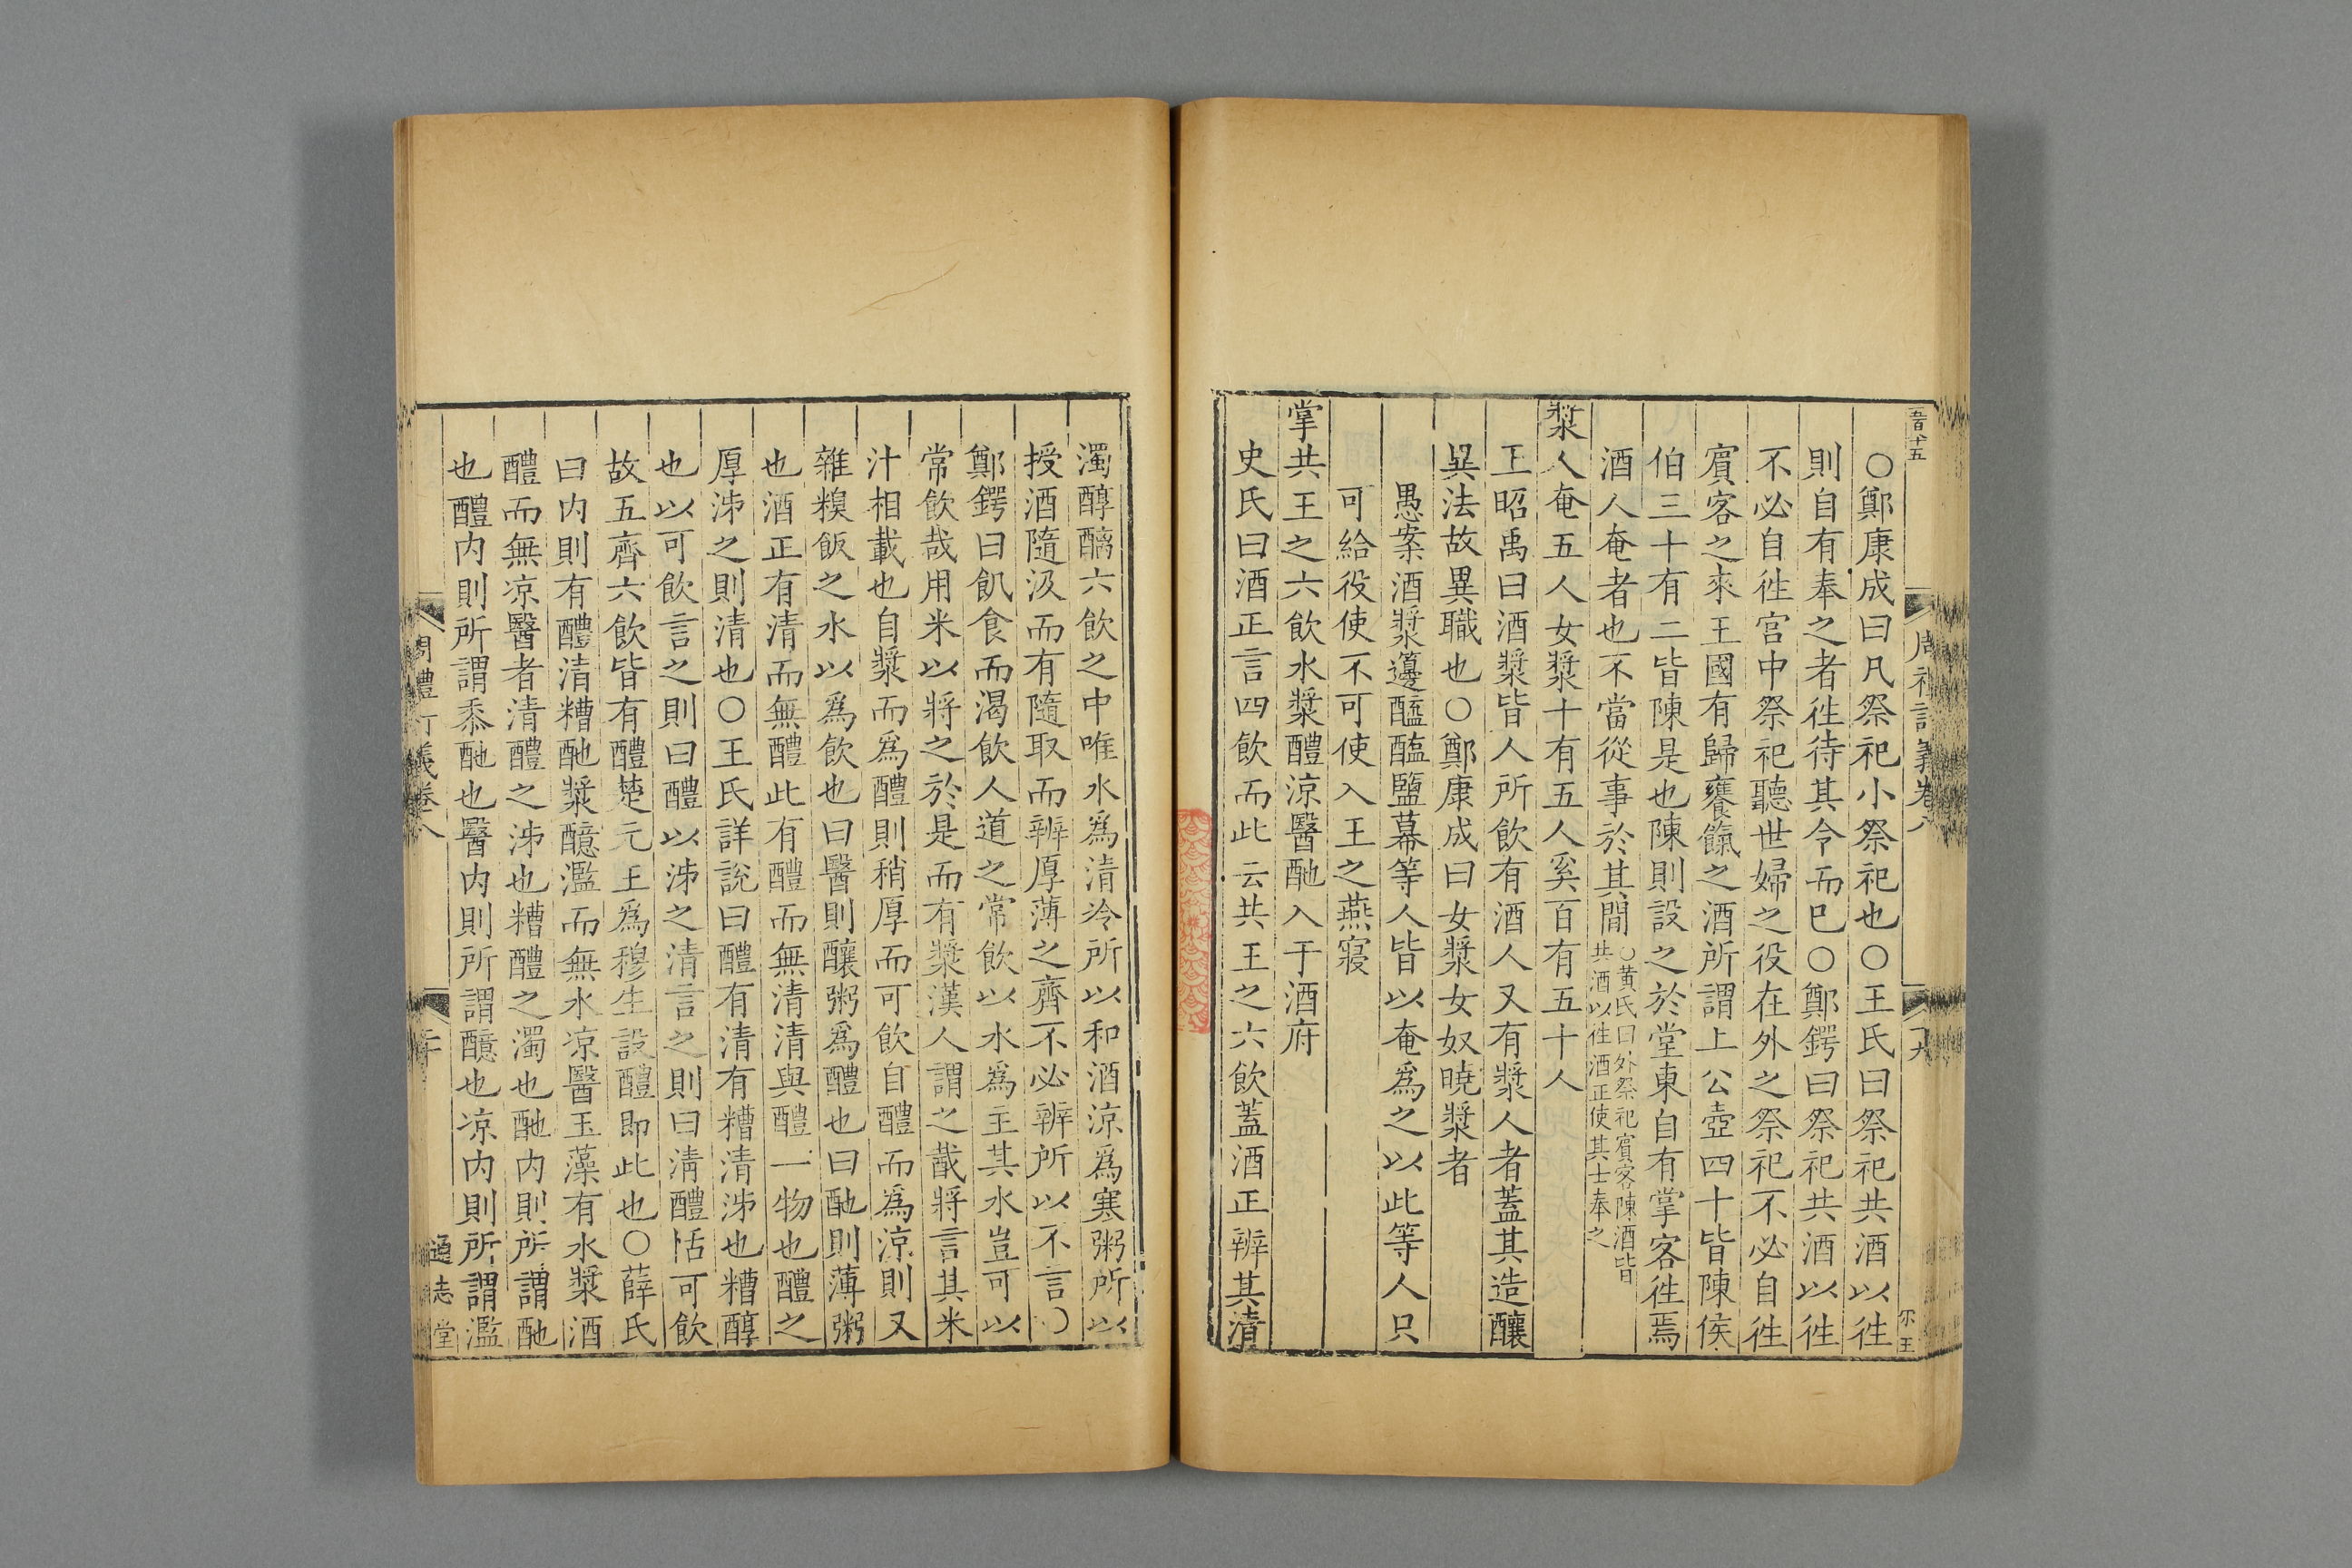 ○鄭康成曰凡祭祀小祭祀也○王氏曰祭祀共酒以徃
則自有奉之者徃待其令而巳○鄭鍔曰祭祀共酒以徃
不必自徃宮中祭祀聽世婦之役在外之祭祀不必自徃
賔客之來王國有歸饔餼之酒所謂上公壺四十皆陳侯
伯三十有二皆陳是也陳則設之於堂東自有掌客徃焉
酒人奄者也不當從事於其間○黄氏曰外祭祀賔客陳酒皆
共酒以徃酒正使其士奉之
漿人奄五人女漿十有五人奚百有五十人
王昭禹曰酒漿皆人所飲有酒人又有漿人者蓋其造釀
異法故異職也○鄭康成曰女漿女奴曉漿者
愚案酒漿籩醢醯鹽幕等人皆以奄爲之以此等人只
可給役使不可使入王之燕寢
掌共王之六飲水漿醴涼醫酏入于酒府
史氏曰酒正言四飲而此云共王之六飲蓋酒正辨其清
濁醇醨六飲之中唯水爲清冷所以和酒涼爲寒粥所以
授酒隨汲而有隨取而辨厚薄之齊不必辨所以不言○
鄭鍔曰飢食而渴飲人道之常飲以水爲主其水豈可以
常飲哉用米以將之於是而有漿漢人謂之截將言其米
汁相載也自漿而爲醴則稍厚而可飲自醴而爲涼則又
雜糗飯之水以爲飲也曰醫則釀粥爲醴也曰酏則薄粥
也酒正有清而無醴此有醴而無清清與醴一物也醴之
厚泲之則清也○王氏詳說曰醴有清有糟清泲也糟醇
也以可飲言之則曰醴以泲之清言之則曰清醴恬可飲
故五齊六飲皆有醴楚元王爲穆生設醴即此也○薛氏
曰内則有醴清糟酏漿醷濫而無水凉醫玉藻有水漿酒
醴而無凉醫者清醴之泲也糟醴之濁也酏内則所謂酏
也醴内則所謂黍酏也醫内則所謂醷也凉内則所謂濫
通志堂